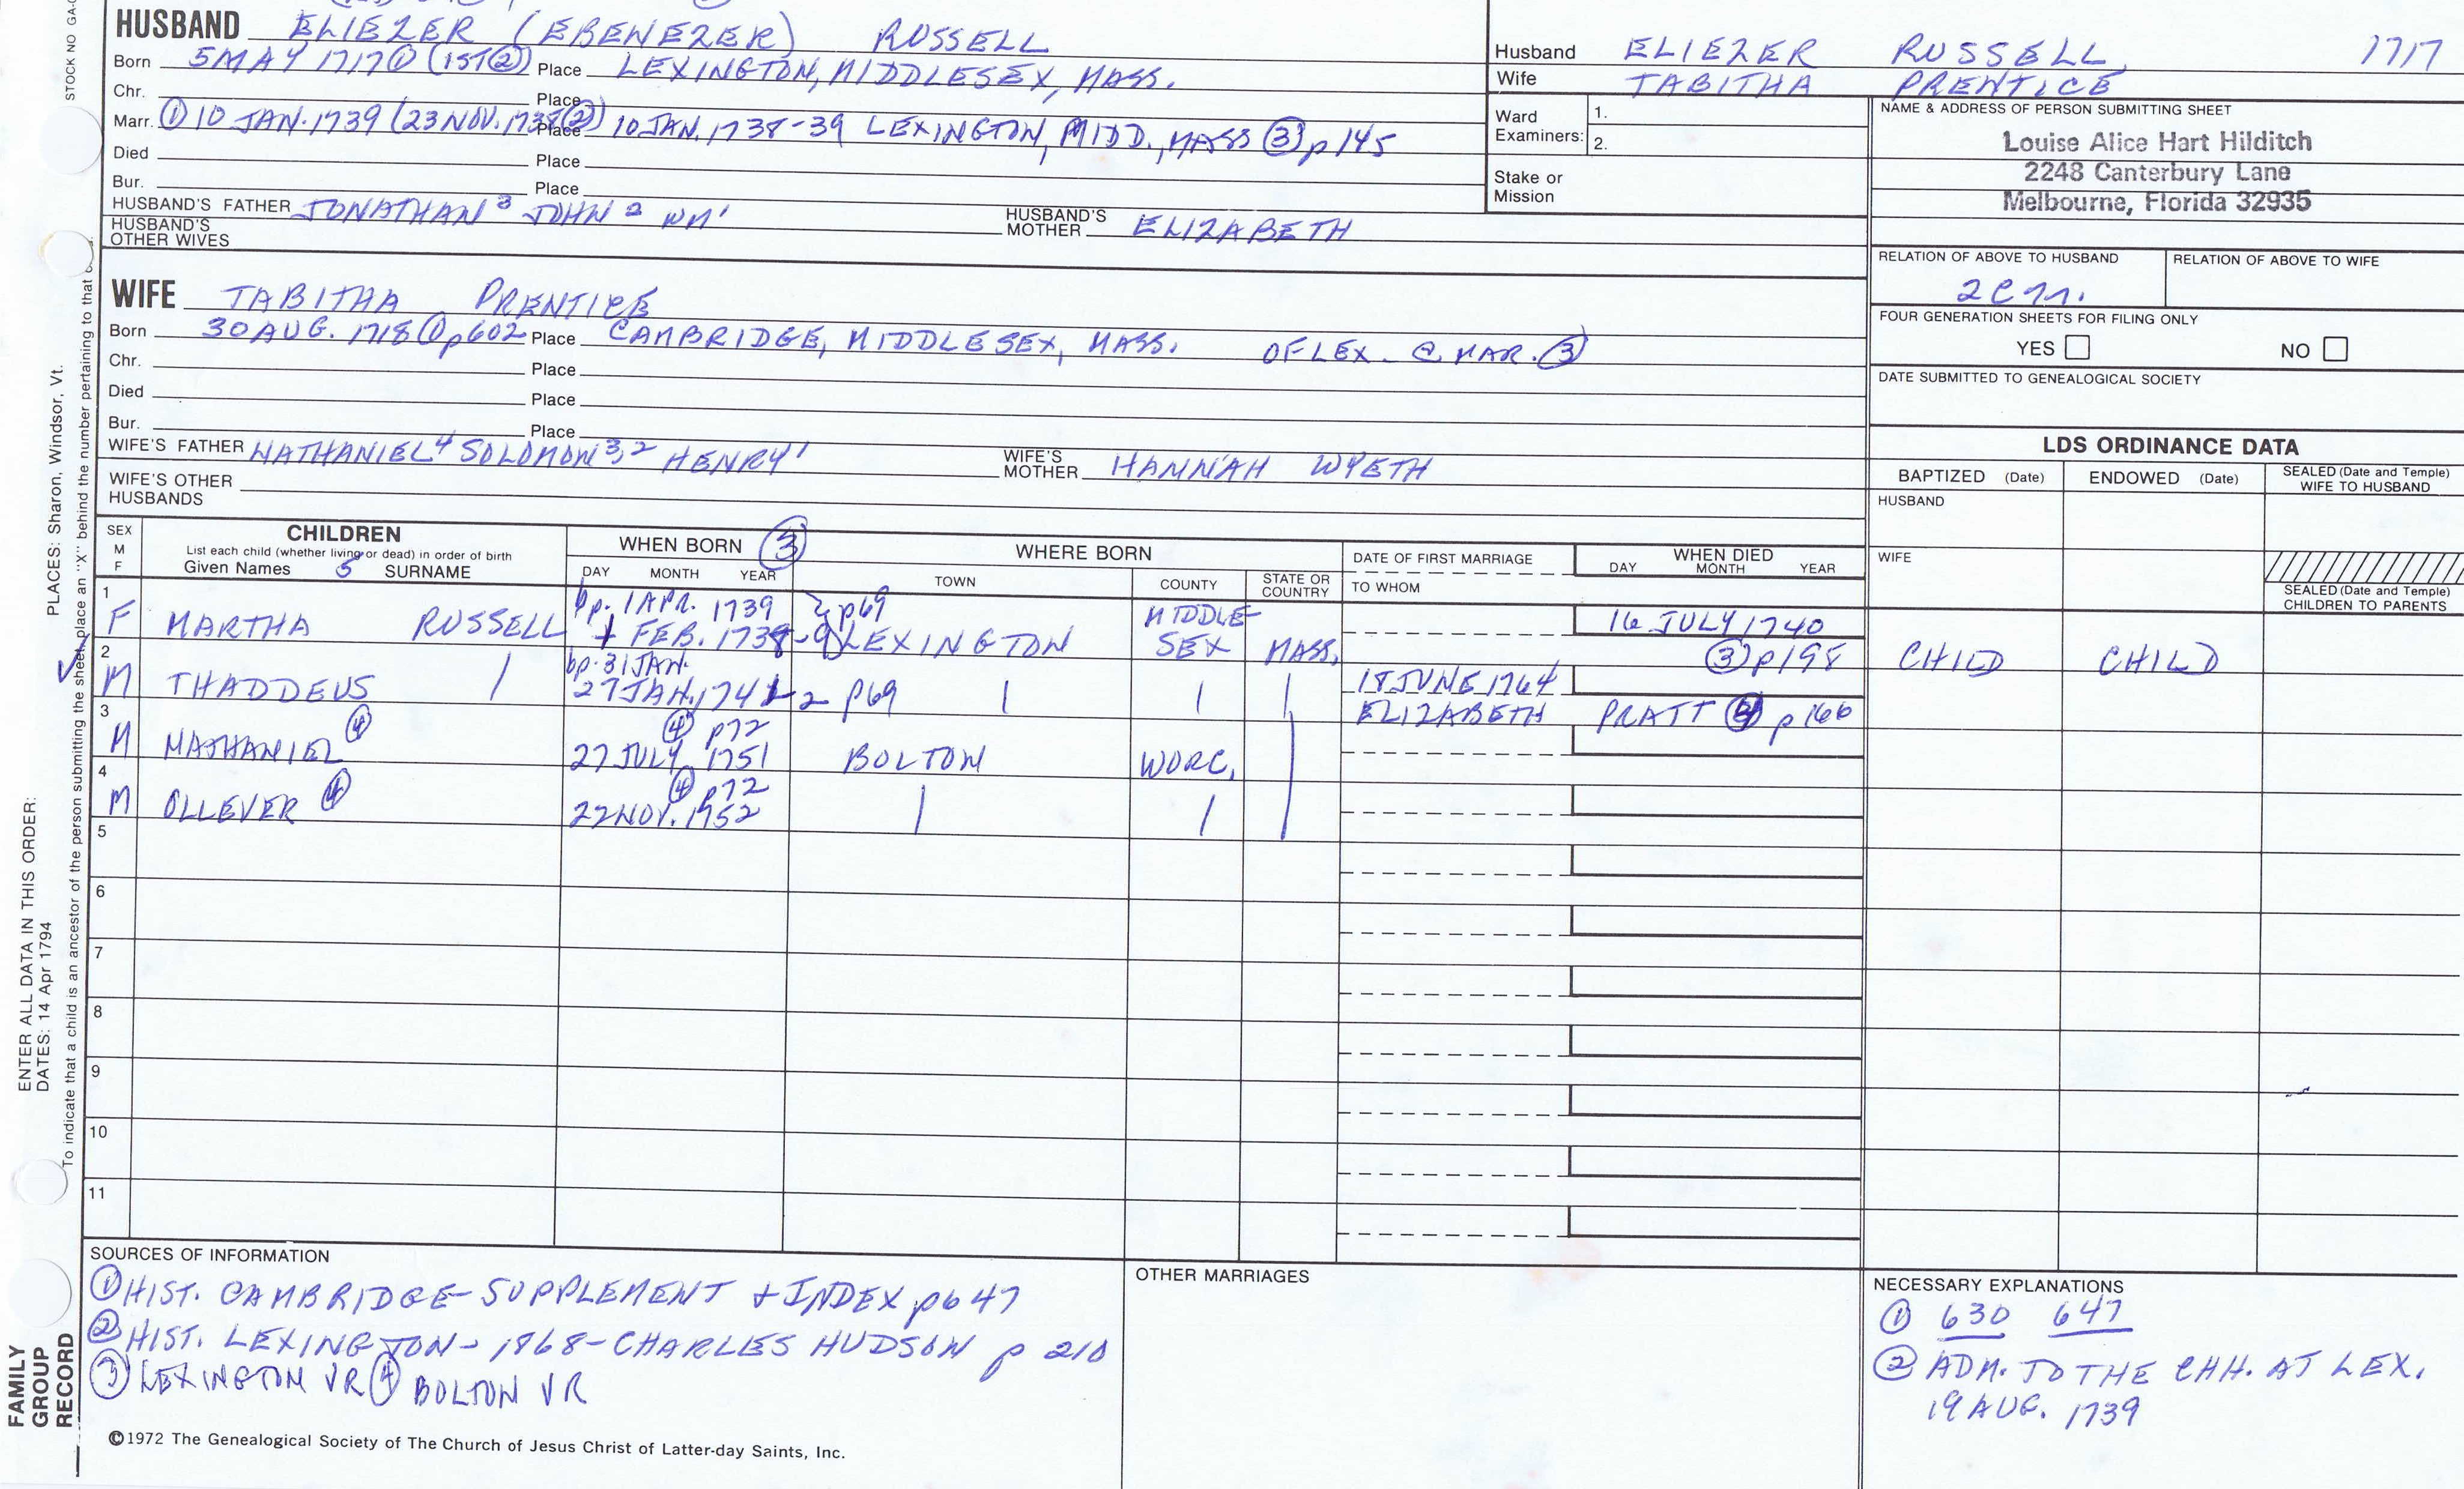 STOCK NO GA-
HUSBAND ELIEZER (EBENEZER) RUSSELL
Born 5 MAY 1717 ① (1ST ②) Place LEXINGTON, MIDDLESEX, MASS.
Chr. Place
Marr. ① 10 JAN. 1739 (23 NOV. 1738 ②) Place 10 JAN. 1738-39 LEXINGTON, MIDD., MASS ③ p 145
Died Place
Bur. Place
HUSBAND'S FATHER JONATHAN 3 JOHN 2 WM 1 HUSBAND'S MOTHER ELIZABETH
HUSBAND'S OTHER WIVES
WIFE TABITHA PRENTICE
Born 30 AUG. 1718 ① p602 Place CAMBRIDGE, MIDDLESEX, MASS. OF LEX - @ MAR. ③
Chr. Place
Died Place
Bur. Place
WIFE'S FATHER NATHANIEL 4 SOLOMON 3,2 HENRY 1 WIFE'S MOTHER HANNAH WYETH
WIFE'S OTHER HUSBANDS
Husband ELIEZER RUSSELL, 1717
Wife TABITHA PRENTICE
Ward Examiners: 1.
2.
Stake or Mission
NAME & ADDRESS OF PERSON SUBMITTING SHEET
Louise Alice Hart Hilditch
2248 Canterbury Lane
Melbourne, Florida 32935
RELATION OF ABOVE TO HUSBAND RELATION OF ABOVE TO WIFE
FOUR GENERATION SHEETS FOR FILING ONLY
YES NO
DATE SUBMITTED TO GENEALOGICAL SOCIETY
LDS ORDINANCE DATA
BAPTIZED (Date) ENDOWED (Date) SEALED (Date and Temple) WIFE TO HUSBAND
HUSBAND
WIFE
SEALED (Date and Temple) CHILDREN TO PARENTS
SEX M F
CHILDREN
List each child (whether living or dead) in order of birth
Given Names 5 SURNAME
WHEN BORN ③
DAY MONTH YEAR
WHERE BORN
TOWN COUNTY STATE OR COUNTRY
DATE OF FIRST MARRIAGE
TO WHOM
WHEN DIED
DAY MONTH YEAR
1 bp. 1 APR. 1739 p69 MIDDLE- 16 JULY 1740
F MARTHA RUSSELL FEB. 1738-9 LEXINGTON SEX MASS. ③ p198 CHILD CHILD
2 bp. 31 JAN.
M THADDEUS 27 JAN. 1741-2 p69 18 JUNE 1764
ELIZABETH PRATT p 166
3 ④ p72
M NATHANIEL ④ 27 JULY 1751 BOLTON WORC.
4 ④ p72
M OLLEVER ④ 22 NOV. 1752
5
6
7
8
9
10
11
SOURCES OF INFORMATION
① HIST. CAMBRIDGE-SUPPLEMENT + INDEX p647
② HIST. LEXINGTON - 1868 - CHARLES HUDSON p 210
③ LEXINGTON VR ④ BOLTON VR
OTHER MARRIAGES
NECESSARY EXPLANATIONS
① 630 647
② ADM. TO THE CHH. AT LEX.
19 AUG. 1739
©1972 The Genealogical Society of The Church of Jesus Christ of Latter-day Saints, Inc.
FAMILY
GROUP
RECORD
ENTER ALL DATA IN THIS ORDER:
DATES: 14 Apr 1794
PLACES: Sharon, Windsor, Vt.
To indicate that a child is an ancestor of the person submitting the sheet, place an "X" behind the number pertaining to that